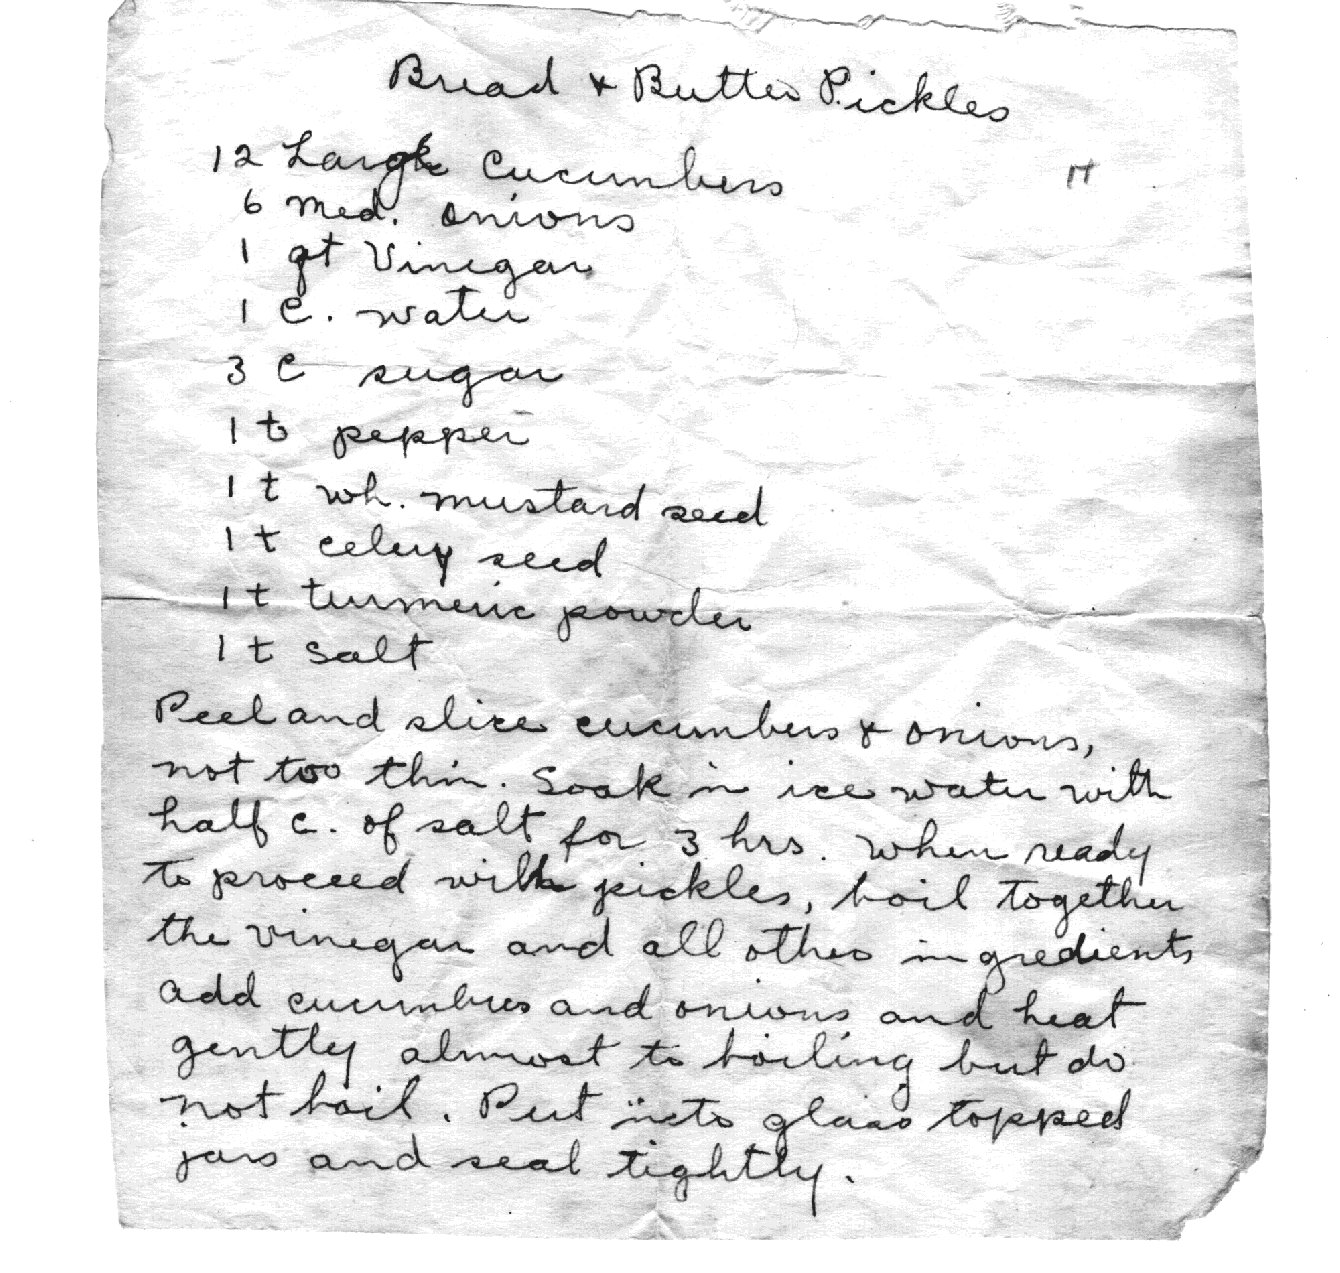 Bread & Butter Pickles
12 Large Cucumbers
6 med. onions
1 qt Vinegar
1 C. water
3 C sugar
1 t pepper
1 t wh. mustard seed
1 t celery seed
1 t turmeric powder
1 t salt
Peel and slice cucumbers & onions,
not too thin. Soak in ice water with
half c. of salt for 3 hrs. When ready
to proceed with pickles, boil together
the vinegar and all other ingredients
add cucumbers and onions and heat
gently almost to boiling but do
not boil. Put into glass topped
jars and seal tightly.